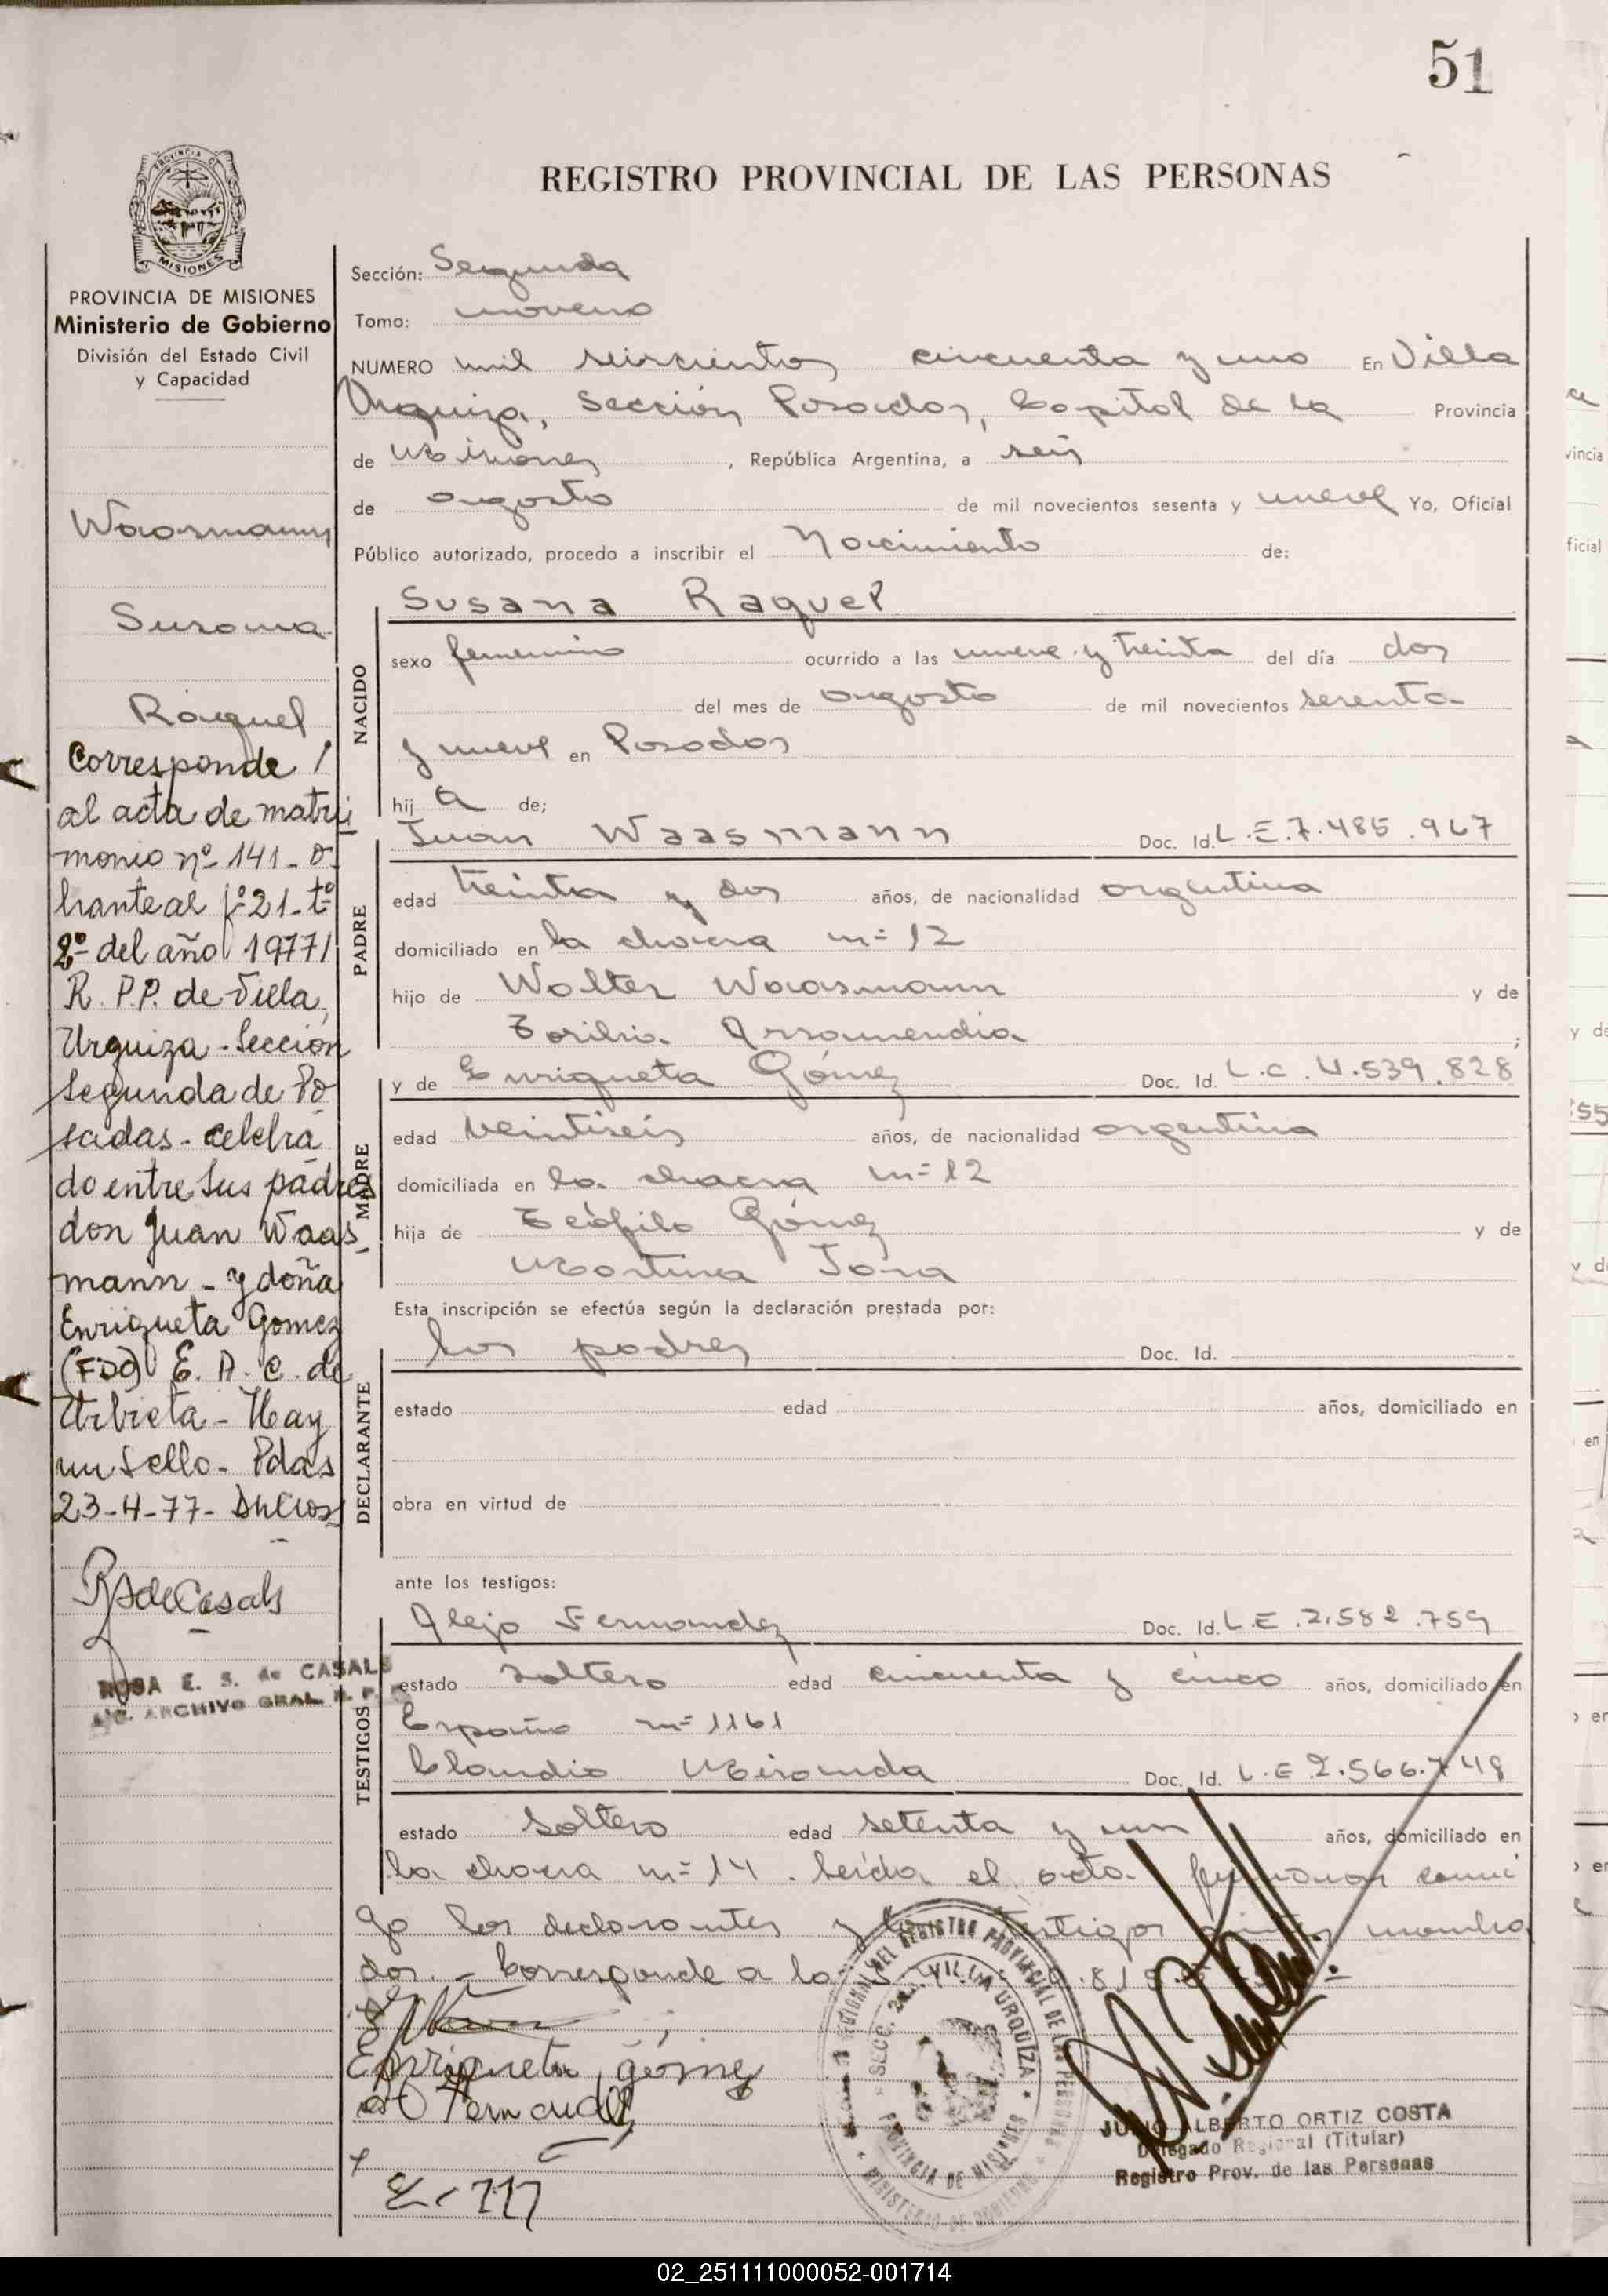 51
REGISTRO PROVINCIAL DE LAS PERSONAS
PROVINCIA DE
MISIONES
PROVINCIA DE MISIONES
Ministerio de Gobierno
División del Estado Civil
y Capacidad
Waasmann
Susana
Raquel
Corresponde
al acta de matri
monio nº 141 - o
brante al fº 21 - tº
2º del año 1977
R. P.P. de Villa
Urquiza - Sección
Segunda de Po
sadas - celebra
do entre sus padres
don Juan Waas
mann - y doña
Enriqueta Gomez
(FDO) E. A. C. de
Urbieta - Hay
un sello - Pdas
23-4-77-
RSdeCasals
ROSA E. S. de CASALS
A/C. ARCHIVO GRAL. R. P. P.
Sección: Segunda
Tomo: noveno
NUMERO mil seiscientos cincuenta y uno En Villa
Urquiza, Sección Posadas, Capital de la Provincia
de Misiones, República Argentina, a seis
de agosto de mil novecientos sesenta y nueve Yo, Oficial
Público autorizado, procedo a inscribir el Nacimiento de:
NACIDO
Susana Raquel
sexo femenino ocurrido a las nueve y treinta del día dos
del mes de agosto de mil novecientos sesenta
y nueve en Posadas
hij a de;
PADRE
Juan Waasmann Doc. Id. L.E.7.485.967
edad treinta y dos años, de nacionalidad argentina
domiciliado en la chacra nº 12
hijo de Walter Waasmann y de
Toribia Arramendia;
MADRE
y de Enriqueta Gómez Doc. Id. L.C.4.539.828
edad veintiseis años, de nacionalidad argentina
domiciliada en la chacra nº 12
hija de Teófilo Gómez y de
Martina Jara
Esta inscripción se efectúa según la declaración prestada por:
DECLARANTE
los padres Doc. Id.
estado edad años, domiciliado en
obra en virtud de
ante los testigos:
TESTIGOS
Alejo Fernandez Doc. Id. L.E.2.582.759
estado soltero edad cincuenta y cinco años, domiciliado en
España nº 1161
Claudio Miranda Doc. Id. L.E 2.566.748
estado soltero edad setenta y un años, domiciliado en
la chacra nº 14. Leída el acta firmaron conmi
go los declarantes y los testigos nombra
dos.- Corresponde a la
Enriqueta gómez
Fernandez
REGIONAL DEL REGISTRO PROVINCIAL DE LAS PERSONAS
SECC. 2da. VILLA URQUIZA
PROVINCIA DE MISIONES
MINISTERIO DE GOBIERNO
JULIO ALBERTO ORTIZ COSTA
Delegado Regional (Titular)
Registro Prov. de las Personas
02_251111000052-001714